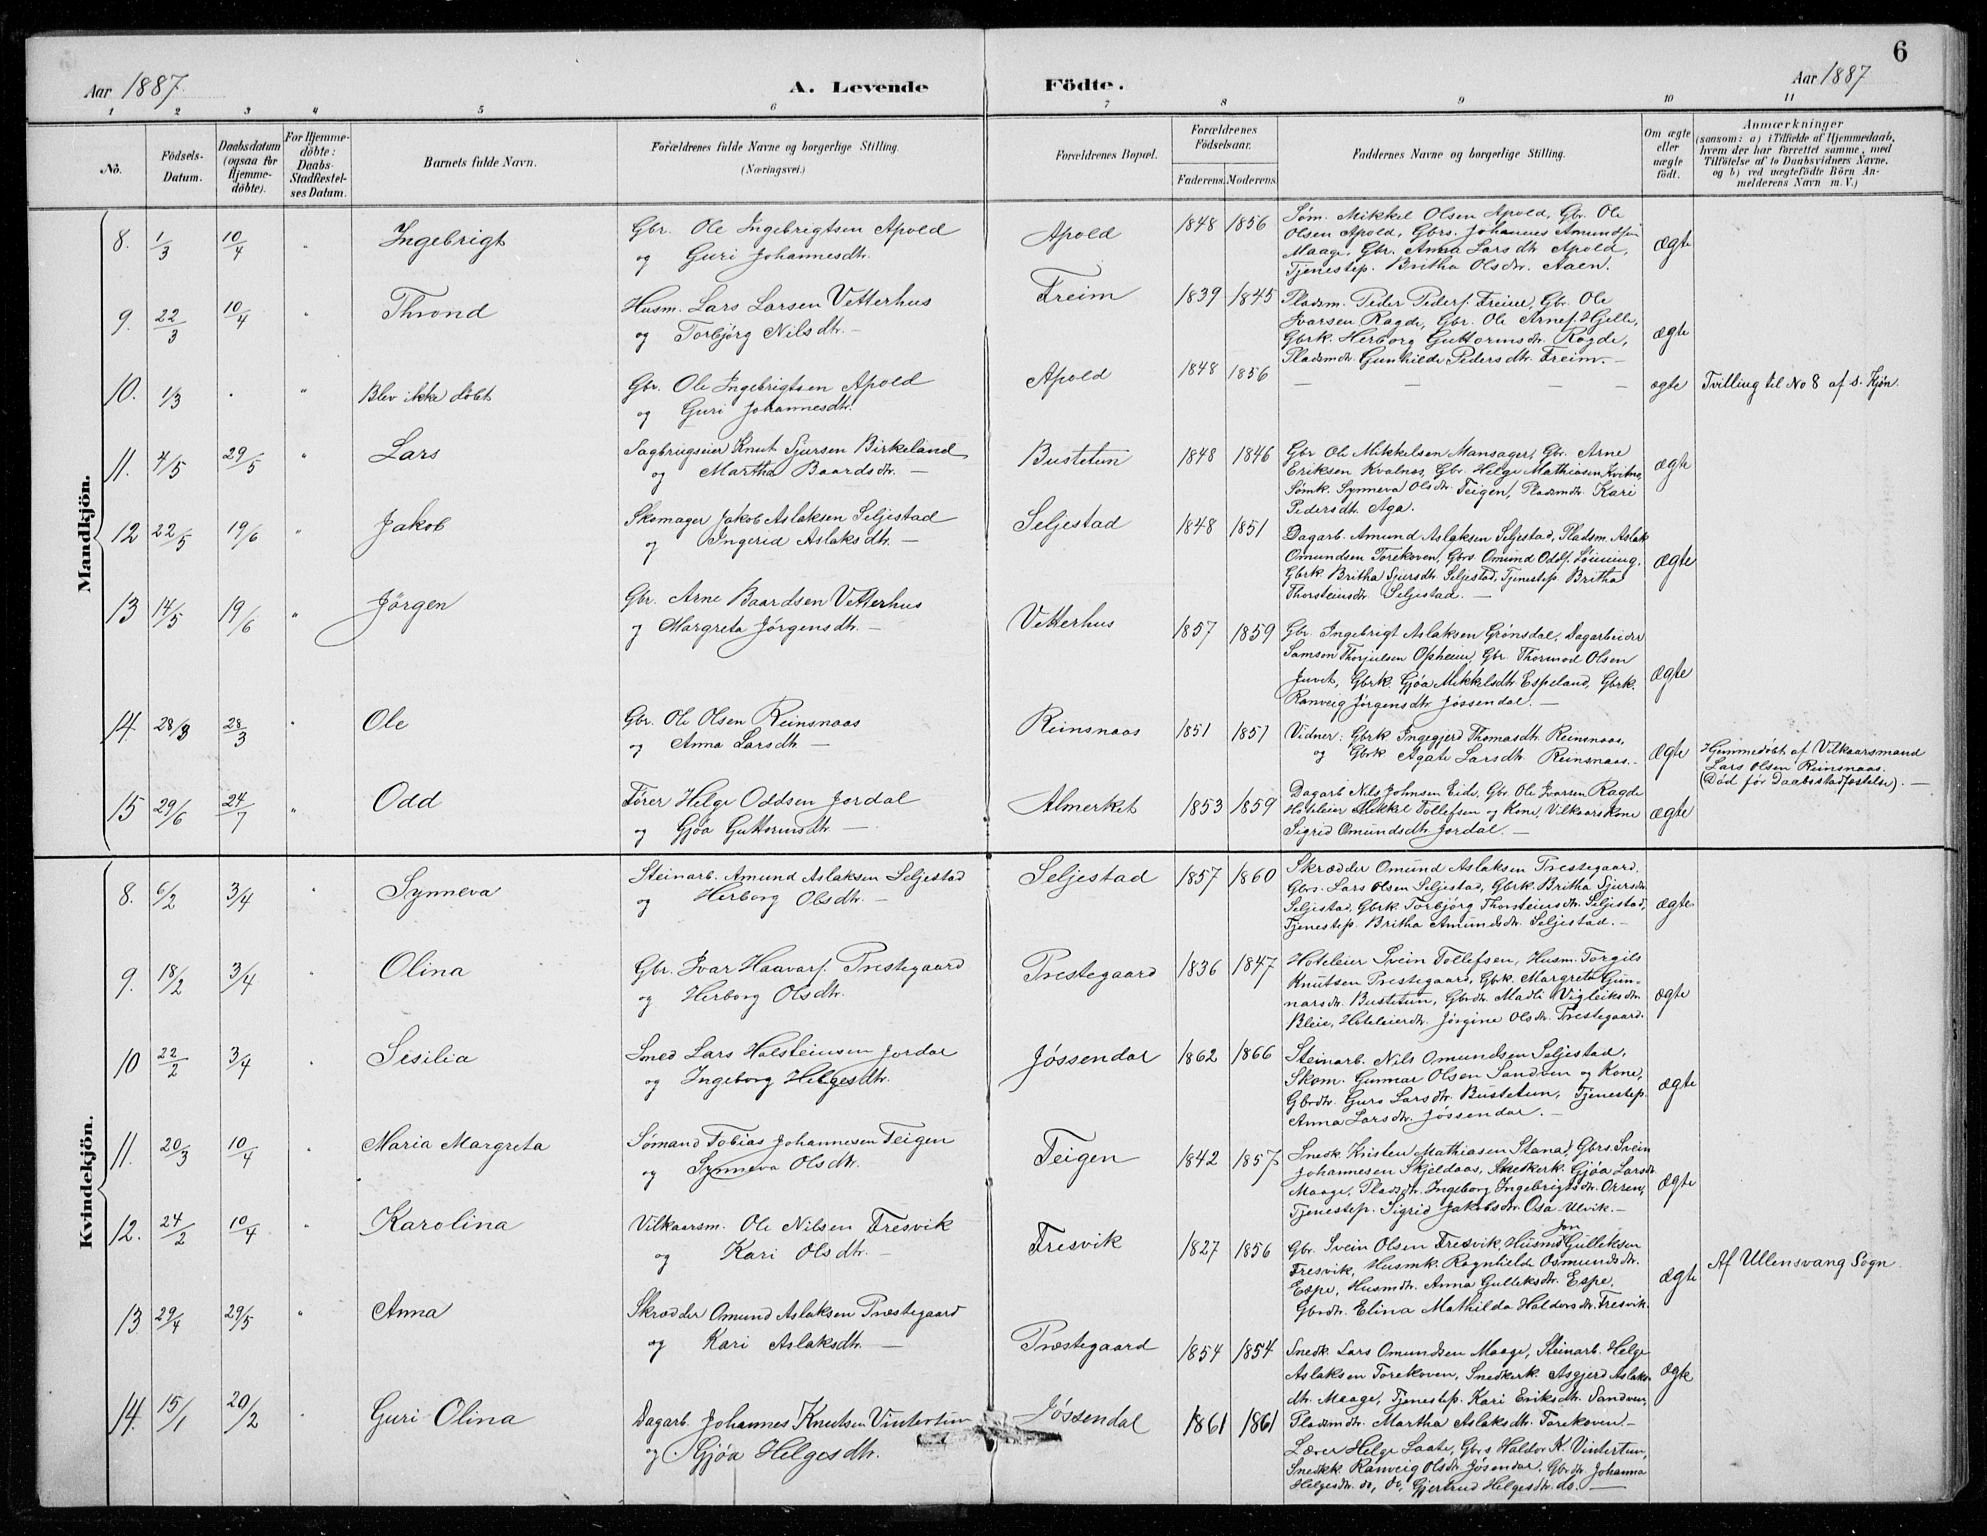 6
Aar 1887.
A. Levende Födte.
Aar 1887
1 2 3 4 5 6 7 8 9 10 11
No.
Födsels-Datum.
Daabsdatum (ogsaa for Hjemme-döbte).
For Hjemme-döbte: Daabs-Stadfæstelses Datum.
Barnets fulde Navn.
Forældrenes fulde Navne og borgerlige Stilling.
(Næringsvei.)
Forældrenes Bopæl.
Forældrenes Födselsaar.
Faderens. Moderens.
Faddernes Navne og borgerlige Stilling.
Om ægte eller uægte födt.
Anmærkninger
(saasom: a) i Tilfælde af Hjemmedaab,
hvem der har forrettet samme, med
Tilföielse af to Daabsvidners Navne,
og b) ved uægtefödte Börn An-
melderens Navn m. V.)
Mandkjön.
8. 1/3 10/4 " Ingebrigt
Gbr. Ole Ingebrigtsen Apold
og Guri Johannesdtr.
Apold 1848 1856
Söm. Mikkel Olsen Apold, Gbr. Ole
Olsen Apold, Gbrs. Johannes Amundsen
Maage, Gbr. Anna Larsdtr Apold,
Tjenestep. Britha Olsdtr. Aaen.
ægte
9. 22/3 10/4 " Thrond
Husm. Lars Larsen Vetterhus
og Torbjörg Nilsdtr. —
Freim 1839 1845
Pladsm. Peder Peders. Freim, Gbr. Ole
Ivarsen Ragde, Gbr. Ole Arnes. Hjelle,
Gbrk. Herborg Guttormsdtr. Ragde,
Pladsmdtr. Gunhilde Pedersdtr. Freim. —
ægte
10. 1/3 " " Blev ikke döbt
Gbr. Ole Ingebrigtsen Apold
og Guri Johannesdtr.
Apold 1848 1856
— — —
ægte Tvilling til No 8 af s. Kjön.
11. 4/5 29/5 " Lars
Sagbrugseier Knut Sjursen Birkeland
og Martha Baardsdtr. —
Bustetun 1848 1846
Gbr Ole Mikkelsen Mansager, Gbr. Arne
Eriksen Kvalnes, Gbr. Helge Mathiasen Kvitno,
Sömk. Synneva Olsdtr. Teigen, Pladsmdtr. Kari
Pedersdtr Aga.
ægte
12 22/5 19/6 " Jakob
Skomager Jakob Aslaksen Seljestad
og Ingerid Aslaksdtr. —
Seljestad 1848 1851
Dagarb. Amund Aslaksen Seljestad, Pladsm. Aslak
Omundsen Torekoven, Gbrs. Omund Odds. Lönning,
Gbrk Britha Sjursdtr Seljestad, Tjenestep. Britha
Thorsteinsdtr. Seljestad. —
ægte
13 14/5 19/6 " Jörgen
Gbr. Arne Baardsen Vetterhus
og Margreta Jörgensdtr. —
Vetterhus 1857 1859
Gbr. Ingebrigt Aslaksen Grönsdal, Dagarbeider
Samson Thorjulsen Opheim, Gbr. Thormod Olsen
Juvet, Gbrk. Gjöa Mikkelsdtr Espeland, Gbrk.
Ranveig Jörgensdtr Jössendal. —
ægte
14. 28/3 28/3 " Ole
Gbr. Ole Olsen Reinsnaas
og Anna Larsdtr —
Reinsnaas 1851 1851
Vidner: Gbrk Ingegjerd Thomasdtr. Reinsnaas,
og Gbrk Agate Larsdtr Reinsnaas. —
ægte
Hjemmedöbt af Vilkaarsmand
Lars Olsen Reinsnaas.
(Död för Daabsstadfæstelse). —
15 29/6 24/7 " Odd
Förer Helge Oddsen Jordal
og Gjöa Guttormsdtr —
Almerket 1853 1859
Dagarb Nils Johnsen Eide, Gbr. Ole Ivarsen Ragde
Hoteleier Mikkel Tollefsen og Kone, Vilkaarskone
Sigrid Omundsdtr Jordal. —
ægte
Kvindekjön.
8. 6/2 3/4 " Synneva
Steinarb. Amund Aslaksen Seljestad
og Herborg Olsdtr. —
Seljestad 1857 1860
Skrædder Omund Aslaksen Prestegaard,
Gbrs. Lars Olsen Seljestad, Gbrk. Britha Sjursdtr.
Seljestad, Gbrk Torbjörg Thorsteinsdtr. Seljestad,
Tjenestep. Britha Amundsdtr. Seljestad. —
ægte
9. 18/2 3/4 " Olina
Gbr. Ivar Haavars. Prestegaard
og Herborg Olsdtr.
Prestegaard 1836 1847
Hoteleier Svein Tollefsen, Husm. Torgils
Knutsen Prestegaard, Gbrk. Margreta Gun-
narsdtr. Bustetun, Gbrdtr. Madli Vigleiksdtr.
Bleie, Hoteleierdtr. Jörgine Olsdtr. Prestegaard.
ægte
10 22/2 3/4 " Sesilia
Smed Lars Holsteinsen Jordal
og Ingeborg Helgesdtr.
Jössendal 1862 1866
Steinarb. Nils Omundsen Seljestad,
Skom. Gunnar Olsen Sandven og Kone,
Gbrdtr. Guro Larsdtr. Bustetun, Tjenestep.
Anna Larsdtr. Jössendal. —
ægte
11. 20/3 10/4 " Maria Margreta
Sömand Tobias Johannesen Teigen
og Synneva Olsdtr.
Teigen 1842 1857
Snedk. Kristen Mathiasen Stana, Gbrs. Svein
Johannesen Skjeldaas, Snedkerk. Gjöa Larsdtr
Maage, Pladsdtr. Ingeborg Ingebrigtsdtr. Orren,
Tjenestep. Sigrid Jakobsdtr. Osa Ulvik. —
ægte
12. 24/2 10/4 " Karolina
Vilkaarsm. Ole Nilsen Fresvik
og Kari Olsdtr. —
Fresvik 1827 1856
Gbr. Svein Olsen Fresvik, Husm Jon Gulleksen
Fresvik, Husmk. Ragnhilda Osmundsdtr.
Espe, Husmdtr. Anna Gulleksdtr. Espe,
Gbrdtr. Elina Mathilda Haldorsdtr. Fresvik.
ægte Af Ullensvang Sogn.
13. 29/4 29/5 " Anna
Skrædder Omund Aslaksen Præstegaard
og Kari Aslaksdtr. —
Præstegaard 1854 1854
Snedk. Lars Omundsen Maage, Steinarb. Helge
Aslaksen Torekoven, Snedkerk. Asgjerd Aslaks-
dtr. Maage, Tjenestep. Kari Eriksdtr. Sandven,
Pladsmdtr. Martha Aslaksdtr. Torekoven. —
ægte
14. 15/1 20/2 " Guri Olina
Dagarb. Johannes Knutsen Vintertun
og Gjöa Helgesdtr.
Jössendal 1861 1861
Lærer Helge Saate, Gbrs Haldor K. Vintertun,
Snedkk. Ranveig Olsdtr Jösendal, Gbrdtr. Johanna
Helgesdtr. do, do, Gjertrud Helgesdtr. do. —